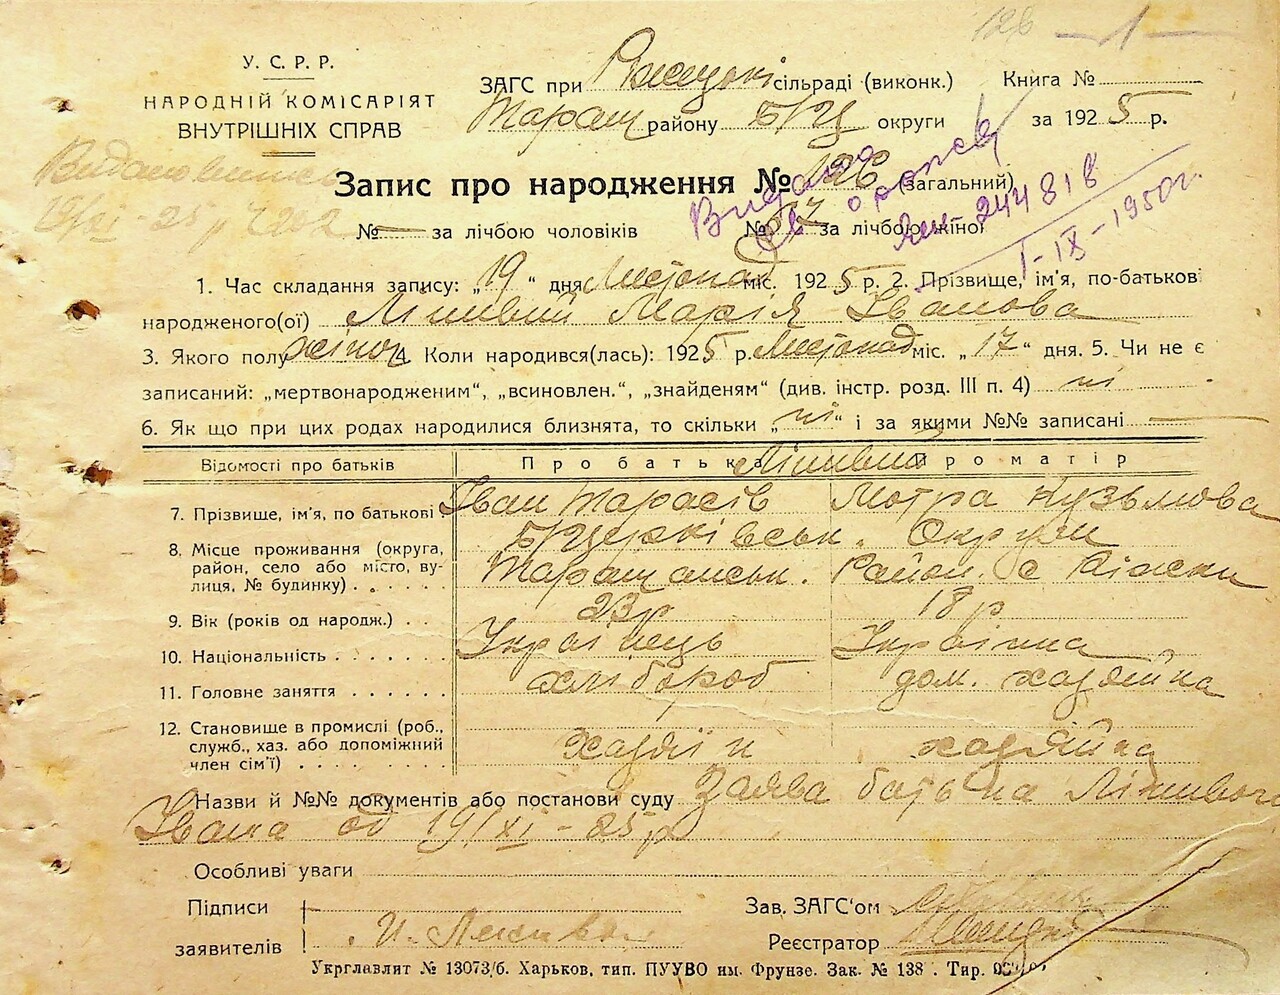 126 — 1 —
У. С. Р. Р.
НАРОДНІЙ КОМІСАРІЯТ
ВНУТРІШНІХ СПРАВ
ЗАГС при сільраді (виконк.) Книга №
Таращ району Б/Ц округи за 1925 р.
Запис про народження № 126 (загальний)
№ — за лічбою чоловіків № 57 за лічбою жіної
Видано
244818
1-IX-1950г.
1. Час складання запису: „19“ дня Листопад міс. 1925 р. 2. Прізвище, ім'я, по-батькові
народженого(ої) Лінивий Марія Іванова
3. Якого полу жіноч 4. Коли народився(лась): 1925 р. Листопад міс. „17“ дня. 5. Чи не є
записаний: „мертвонародженим“, „всиновлен.“, „знайденям“ (див. інстр. розд. III п. 4) ні
6. Як що при цих родах народилися близнята, то скільки „ні“ і за якими №№ записані —
Відомості про батьків Про батька Про матір
Лінивий
7. Прізвище, ім'я, по батькові Іван Тарасів Мотра Кузьмова
8. Місце проживання (округа, Б/Церківськ. Округи
район, село або місто, ву-
лиця, № будинку) Таращанськ. Район. с
9. Вік (років од народж.) 23р 18р
10. Національність Українець Українка
11. Головне заняття хлібороб дом. хазяйка
12. Становище в промислі (роб.,
служб., хаз. або допоміжний
член сім'ї) хазяїн хазяйка
Назви й №№ документів або постанови суду Заява батька Лінивого
Івана од 19/XI-25р
Особливі уваги
Підписи
заявителів И. Линивой
Зав. ЗАГС'ом
Реєстратор
Укрглавліт № 13073/б. Харьков, тип. ПУУВО им. Фрунзе. Зак. № 138. Тир.